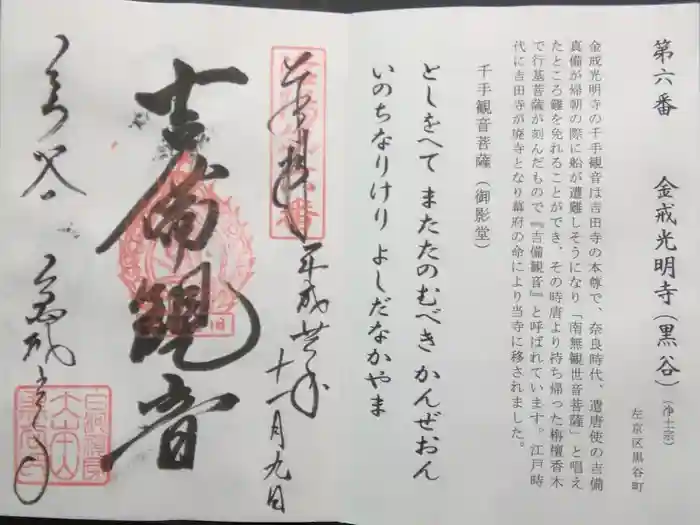 第六番 金戒光明寺(黒谷)(浄土宗)
左京区黒谷町
金戒光明寺の千手観音は吉田寺の本尊で、奈良時代、遣唐使の吉備
真備が帰朝の際に船が遭難しそうになり「南無観世音菩薩」と唱え
たところ難を免れることができ、その時唐より持ち帰った栴檀香木
で行基菩薩が刻んだもので『吉備観音』と呼ばれています。江戸時
代に吉田寺が廃寺となり幕府の命により当寺に移されました。
千手観音菩薩(御影堂)
としをへて またたのむべき かんぜおん
いのちなりけり よしだなかやま
奉拝
平成廿年
十一月九日
吉備観音